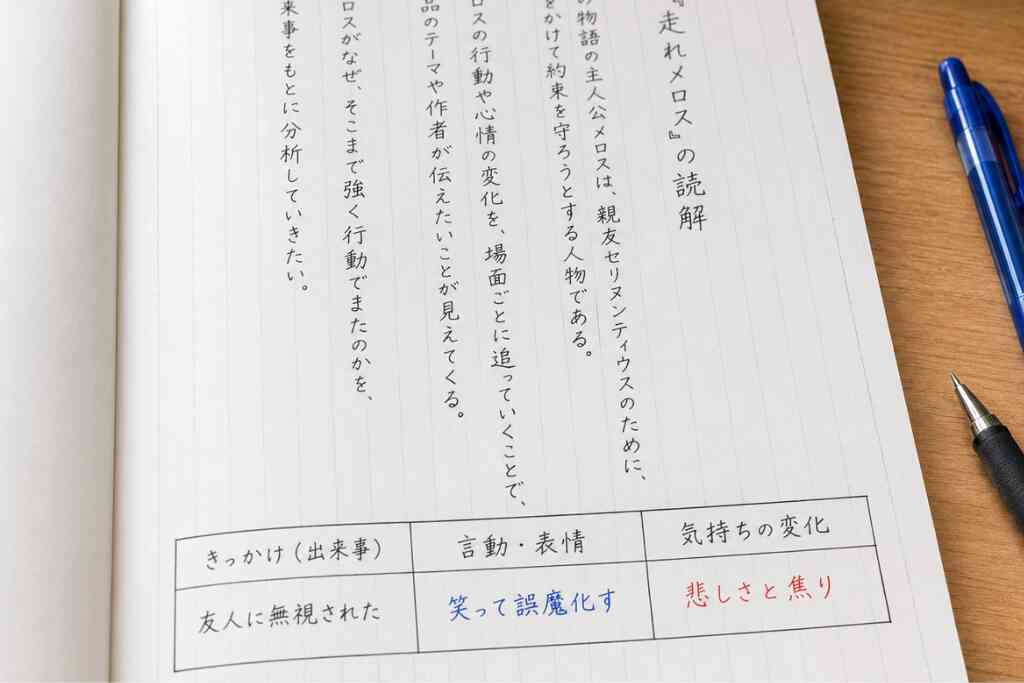 『走れメロス』の読解
の物語の主人公メロスは、親友セリヌンティウスのために、
をかけて約束を守ろうとする人物である。
ロスの行動や心情の変化を、場面ごとに追っていくことで、
品のテーマや作者が伝えたいことが見えてくる。
ロスがなぜ、そこまで強く行動でまたのかを、
来事をもとに分析していきたい。
きっかけ（出来事）
言動・表情
気持ちの変化
友人に無視された
笑って誤魔化す
悲しさと焦り